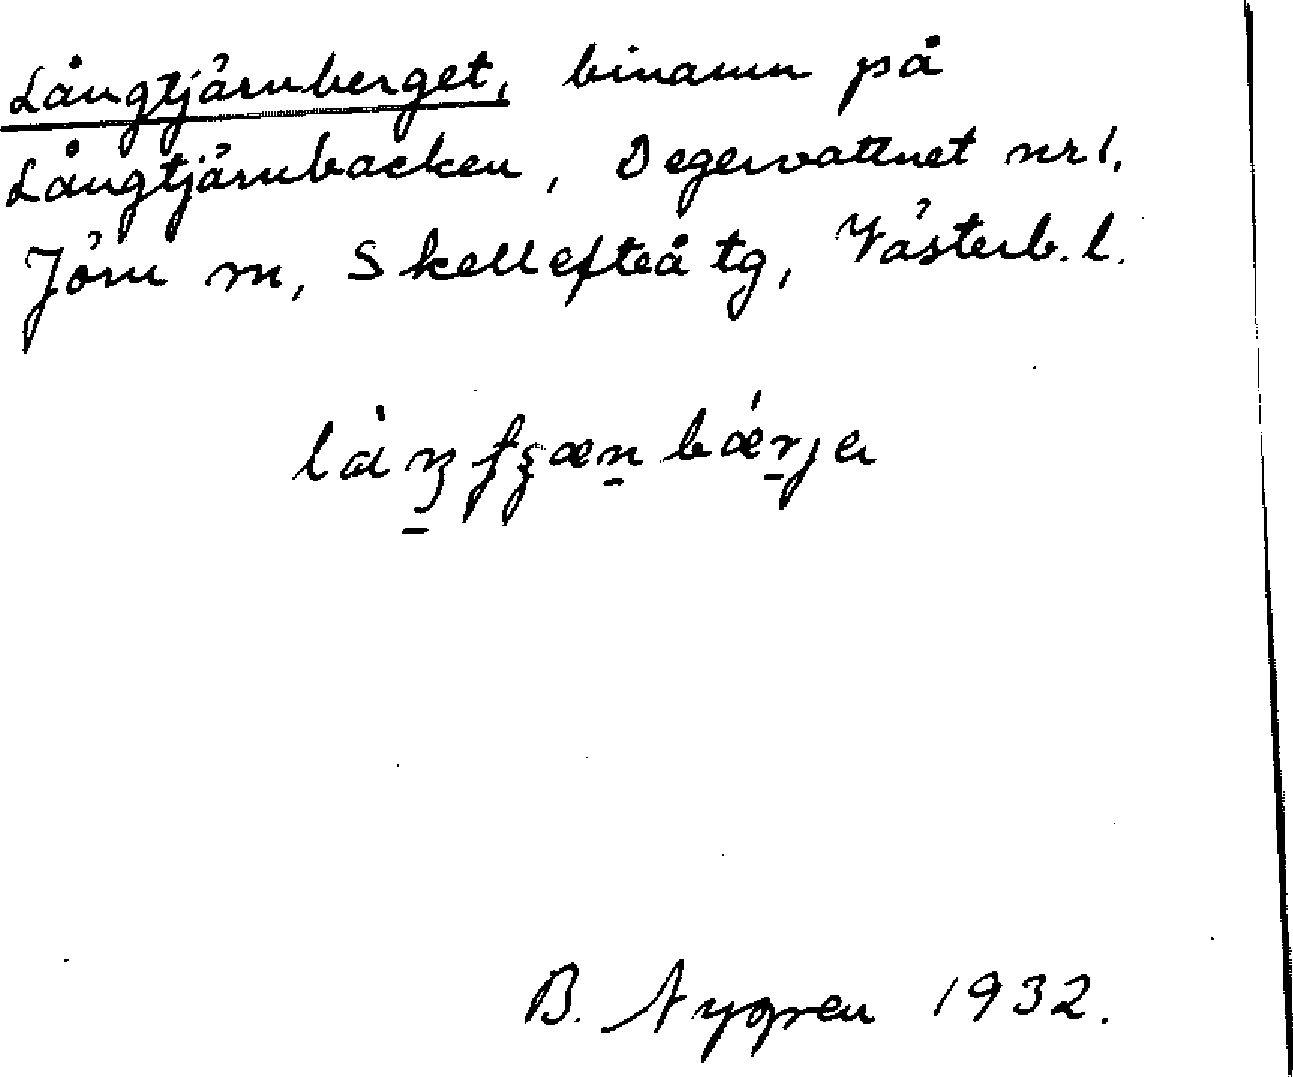 Långtjärnberget, binamn på
Långtjärnbacken, Degervattnet nr 1.
Jörn sn, Skellefteå tg, Västerb. l.
B. Nygren 1932.